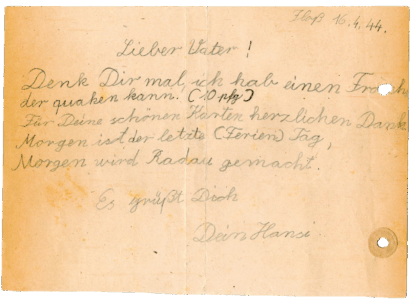 16.4.44.
Lieber Vater!
Denk Dir mal, ich hab einen
der quaken kann. (10 pfg)
Für Deine schönen Karten herzlichen Dank
Morgen ist der letzte (Ferien) Tag,
Morgen wird Radau gemacht.
Es grüßt Dich
Dein Hansi